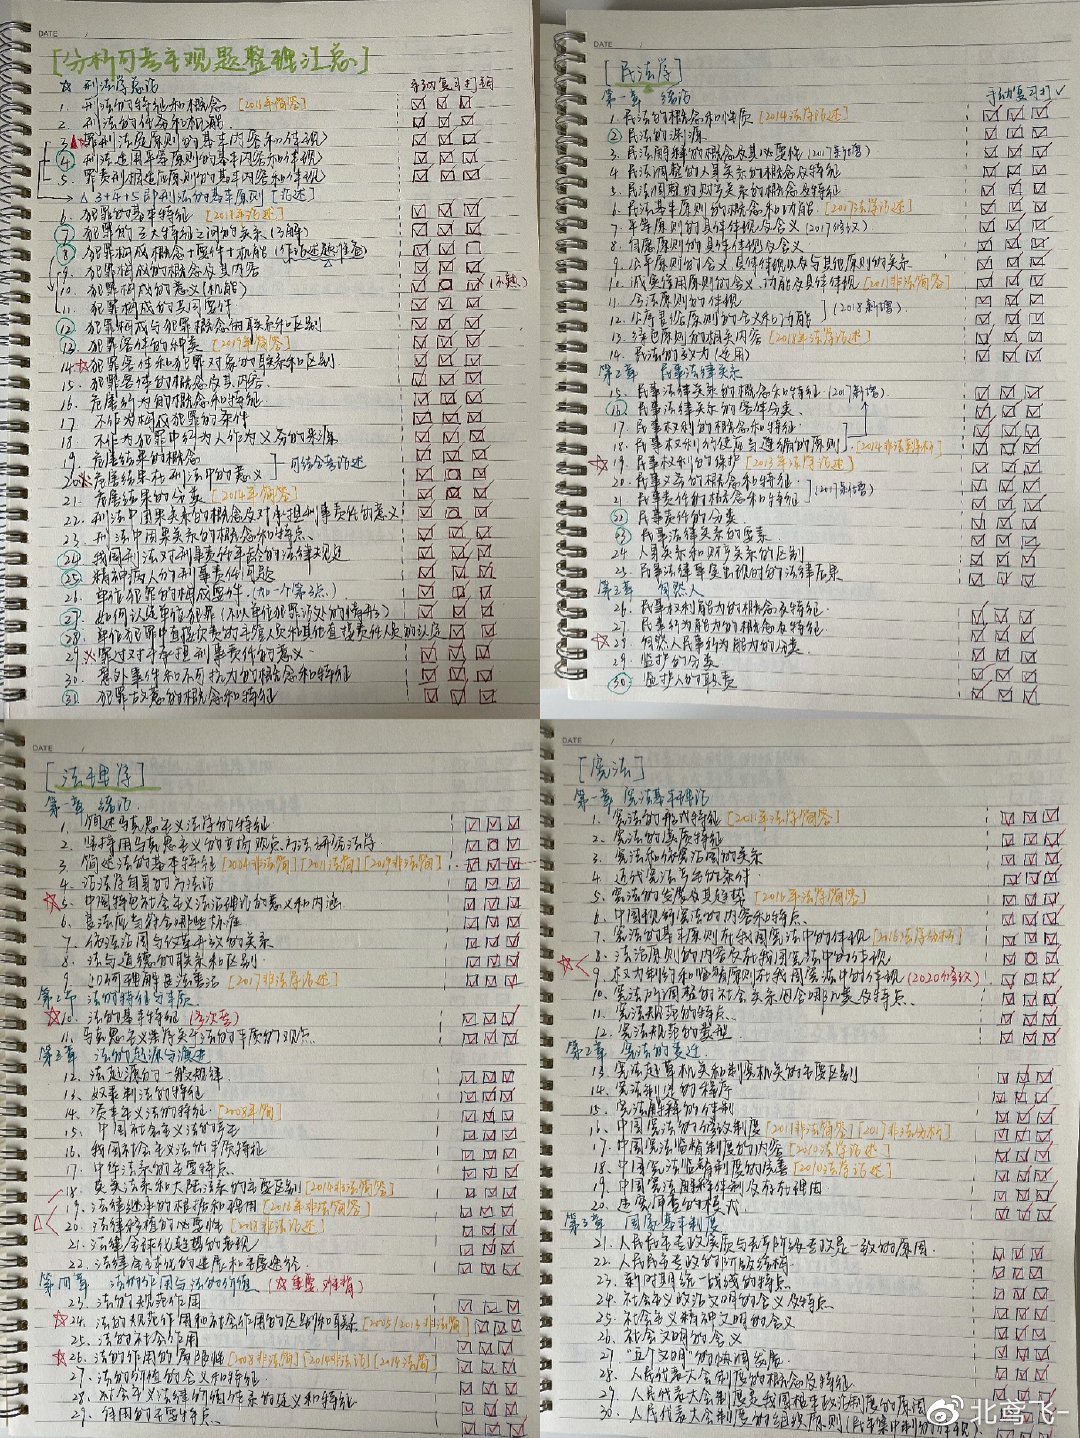 DATE /
[分析可考主观题整理汇总]
☆ 刑法学总论
1. 刑法的特征和概念 [2014年简答]
2. 刑法的任务和机能
3. 罪刑法定原则的基本内容和体现
4 刑法适用平等原则的基本内容和体现
5. 罪责刑相适应原则的基本内容和体现
△ 3+4+5即刑法的基本原则 [论述]
6. 犯罪的基本特征 [2018年论述]
7. 犯罪的三大特征之间的关系(理解)
8. 犯罪构成概念+要件+机能
9. 犯罪构成的概念及其内容
10. 犯罪构成的意义(机能)
11. 犯罪构成的共同要件
12. 犯罪构成与犯罪概念的联系和区别
13. 犯罪客体的种类 [2019年简答]
14. 犯罪客体和犯罪对象的联系和区别
15. 犯罪客体的概念及其内容
16. 危害行为的概念和特征
17. 不作为构成犯罪的条件
18. 不作为犯罪中行为人作为义务的来源
19. 危害结果的概念
20. 危害结果在刑法中的意义 可结合考论述
21. 危害结果的分类 [2014年简答]
22. 刑法中因果关系的概念及对承担刑事责任的意义
23. 刑法中因果关系的概念和特点
24. 我国刑法对刑事责任年龄的法律规定
25. 精神病人的刑事责任问题
26. 单位犯罪的构成要件 (加一个第3点)
27. 如何认定单位犯罪 (不以单位犯罪论处的情形)
28. 单位犯罪中直接负责的主管人员和其他直接责任人员的认定
29. 罪过对于承担刑事责任的意义
30. 意外事件和不可抗力的概念和特征
31. 犯罪故意的概念和特征
DATE /
[民法学]
第一章 绪论
1. 民法的概念和性质 [2014法学论述]
2 民法的渊源
3. 民法解释的概念及其必要性 (2017新增)
4 民法调整的人身关系的概念及特征
5. 民法调整的财产关系的概念及特征
6. 民法基本原则的概念和功能 [2017法学论述]
7. 平等原则的具体体现及含义 (2017修改)
8. 自愿原则的具体体现及含义
9. 公平原则的含义、具体体现以及与其他原则的关系
10. 诚实信用原则的含义、功能及具体体现 [2011非法简答]
11. 合法原则的体现
12. 公序良俗原则的含义和功能 (2018新增)
13. 绿色原则的相关内容 [2018年法学论述]
14. 民法的效力(适用)
第2章 民事法律关系
15. 民事法律关系的概念和特征 (2017新增)
16. 民事法律关系的客体分类
17. 民事权利的概念和特征
18. 民事权利行使应当遵循的原则 [2014非法分析]
19. 民事权利的保护 [2013年法学论述]
20. 民事义务的概念和特征
21. 民事责任的概念和特征 (2017新增)
22. 民事责任的分类
23. 民事法律关系的要素
24 人身关系和财产关系的区别
25. 民事法律事实出现时的法律后果
第3章 自然人
26. 民事权利能力的概念及特征
27. 民事行为能力的概念及特征
28. 自然人民事行为能力的分类
29. 监护的分类
30. 监护人的职责
DATE /
[法理学]
第一章 绪论
1. 简述马克思主义法学的特征
2. 坚持用马克思主义的立场观点方法研究法学
3. 简述法的基本特征 [2014非法简] [2011法简] [2019非法简]
4. 论法学自身的方法论
5. 中国特色社会主义法治理论的意义和内涵
6. 良法应当符合哪些标准
7. 依法治国与改革开放的关系
8. 法与道德的联系和区别
9. 如何理解良法善治 [2017非法学论述]
第2章 法的特征与本质
10. 法的基本特征 (多次考)
11. 马克思主义法学关于法的本质的观点
第3章 法的起源与演进
12. 法起源的一般规律
13. 奴隶制法的特征
14. 资本主义法的特征 [2008年简]
15. 中国社会主义法的特征
16. 我国社会主义法的本质特征
17. 中华法系的主要特点
18. 英美法系和大陆法系的主要区别 [2014非法简答]
19. 法律继承的根据和理由 [2016年非法简答]
20. 法律移植的必要性 [2018非法论述]
21. 法律全球化趋势的表现
22. 法律现代化的进展和主要途径
第四章 法的作用与法的价值 (☆重要 难背)
23. 法的规范作用
24. 法的规范作用和社会作用的区别和联系 [2005/2013非法简]
25. 法的社会作用
26. 法的作用的局限性 [2008非法简] [2014非法论] [2014法简]
27. 法的价值的含义和特征
28. 社会主义法律的价值体系的定义和特征
29. 自由的主要特点
DATE /
[宪法]
第一章 宪法基本理论
1. 宪法的形式特征 [2011年法学简答]
2. 宪法的实质特征
3. 宪法和依宪治国的关系
4 近代宪法产生的条件
5. 宪法的发展及其趋势 [2016年法学简答]
6. 中国现行宪法的内容和特点
7. 宪法的基本原则在我国宪法中的体现 [2016法学分析]
8. 法治原则的内容及在我国宪法中的体现
9. 权力制约和监督原则在我国宪法中的体现 (2020修改)
10. 宪法所调整的社会关系包含哪几类及特点
11. 宪法规范的特点
12. 宪法规范的类型
第2章 宪法的变迁
13. 宪法起草机关和制宪机关的主要区别
14. 宪法制定的程序
15. 宪法解释的体制
16 中国宪法的修改制度 [2011非法简答] [2017非法分析]
17. 中国宪法监督制度的内容 [2010法学论述]
18. 中国宪法监督制度的完善 [2010法学论述]
19. 中国宪法解释体制及存在理由
20. 违宪审查的模式
第3章 国家基本制度
21. 人民民主专政实质与无产阶级专政是一致的原因
22. 人民民主专政的阶级结构
23. 新时期统一战线的特点
24. 社会主义政治文明的含义及特点
25. 社会主义精神文明的含义
26. 社会文明的含义
27. "五个文明"的协调发展
28. 人民代表大会制度的概念及特征
29. 人民代表大会制度是我国根本政治制度的原因
30. 人民代表大会制度的组织原则 (民主集中制的体现)
@北鸾飞-